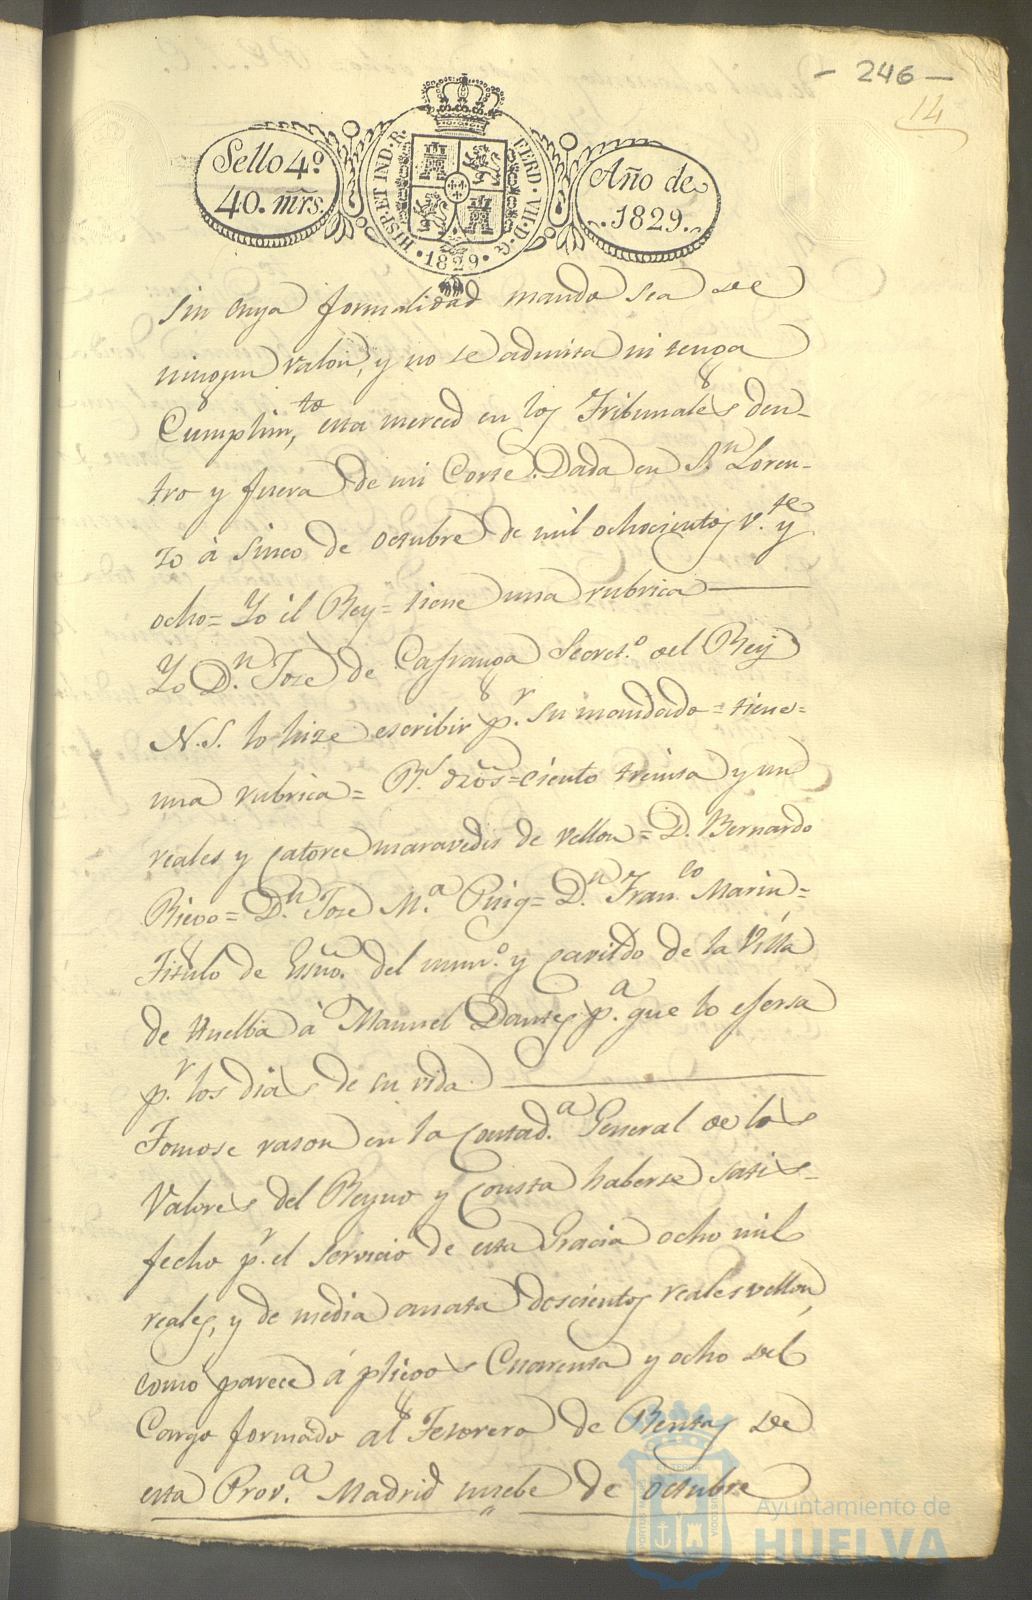 - 246 -
14
Sello 4.º
40. mrs.
HISP. ET IND. R.
FERD. VII. D. G.
· 1829 ·
Año de
1829.
sin cuya formalidad mando sea de
ningun valor, y no se admita ni tenga
Cumplim.to esta merced en los Tribunales den-
tro y fuera de mi Corte. Dada en S.n Loren-
zo á sinco de octubre de mil ochocientos v.te y
ocho= Yo el Rey= tiene una rubrica
Yo D.n Jose de Cafranga Secret.o del Rey
N. S. lo hize escribir p.r su mandado= tiene=
una rubrica= R.l dros= ciento treinta y un
reales y catorce maravedis de vellon= D. Bernardo
Riego= D.n Jose M.a Puig= D.n Fran.co Marin=
Titulo de Essño. del num.o y cavildo de la Villa
de Huelba á Manuel Dantes p.a que lo ejersa
p.r los dias de su vida.
Tomose rason en la Contad.a General de los
Valores del Reyno y Consta haberse satis-
fecho p.r el servicio de esta Gracia ocho mil
reales, y de media anata doscientos reales vellon,
como parece á pliegos Cuarenta y ocho del
Cargo formado al Tesorero de Rentas de
esta Prov.a Madrid nuebe de octubre
Ayuntamiento de
HUELVA